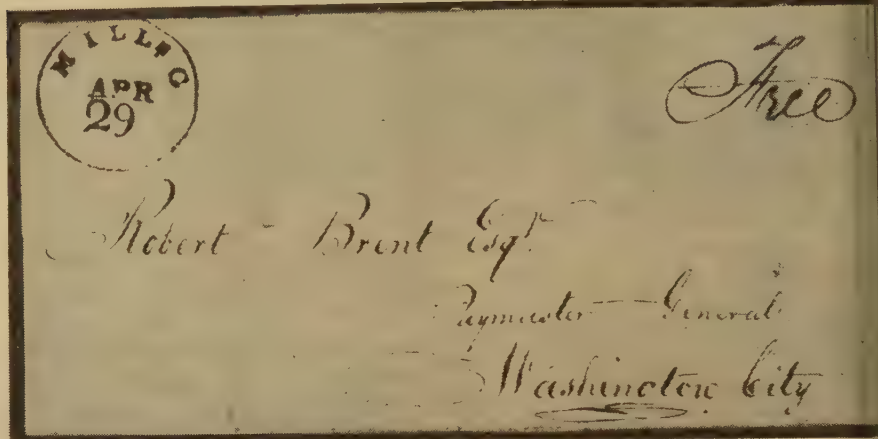 MILL*G
APR
29
Free
Robert Brent Esqr.
Paymaster General
Washington City